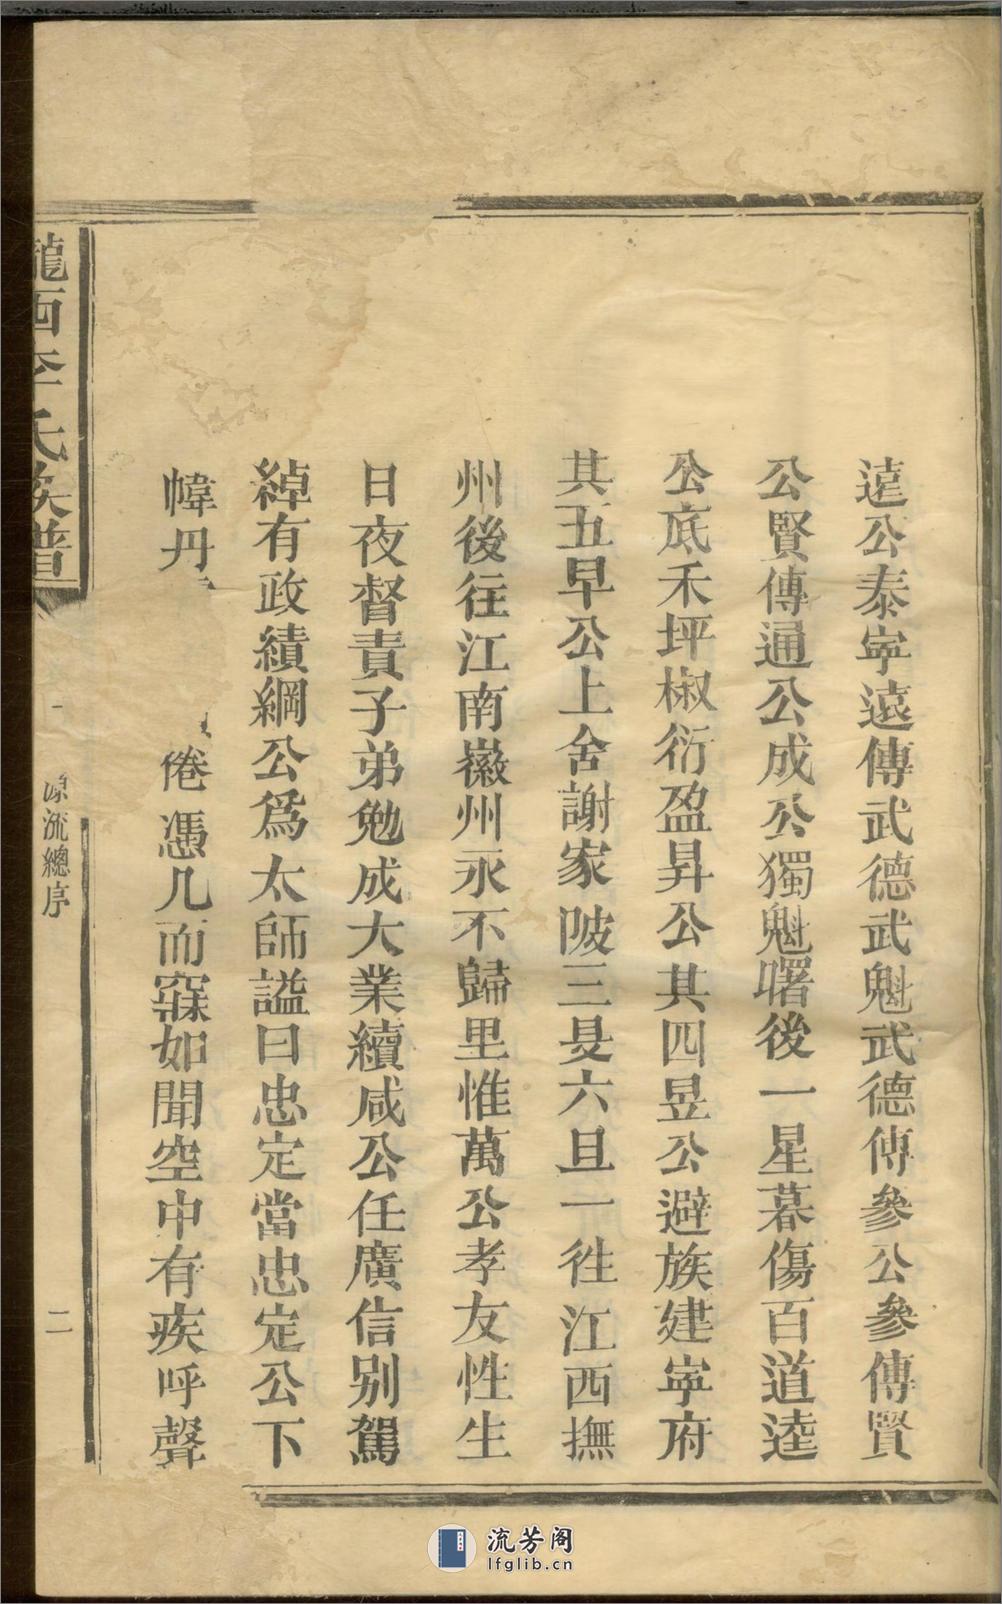 遠公泰寜遠傳武德武魁武德傳參公參傳賢
公賢傳通公成公獨魁曙後一星暮傷百道逵
公底禾坪椒衍盈昇公其四昱公避族建寜府
其五早公上舍謝家陂三旻六旦一徃江西撫
州後往江南徽州永不歸里惟萬公孝友性生
日夜督責子弟勉成大業續咸公任廣信别駕
綽有政績綱公爲太師謚曰忠定當忠定公下
幃丹倦憑几而寐如聞空中有疾呼聲
隴西李氏族譜
源流總序
二
流芳阁
lfglib.cn